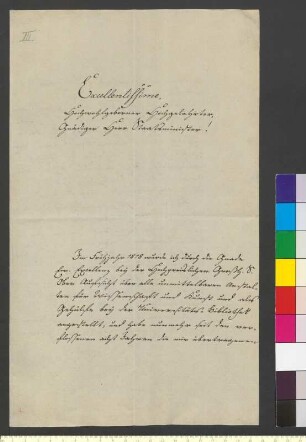 Excellentissime,
Hochwohlgeborner Hochgelehrter,
Gnädiger Herr Staatsminister!
Im Frühjahr 1818 wurde ich durch die Gnade
Ew. Excellenz bey der Großh. S.
Ober Aufsicht über alle unmittelbaren Anstal-
ten für Wissenschaft und Kunst und als
Gehülfe bey der Universitäts-Bibliothek
angestellt, und habe nunmehr seit den ver-
flossenen acht Jahren die mir übertragenen